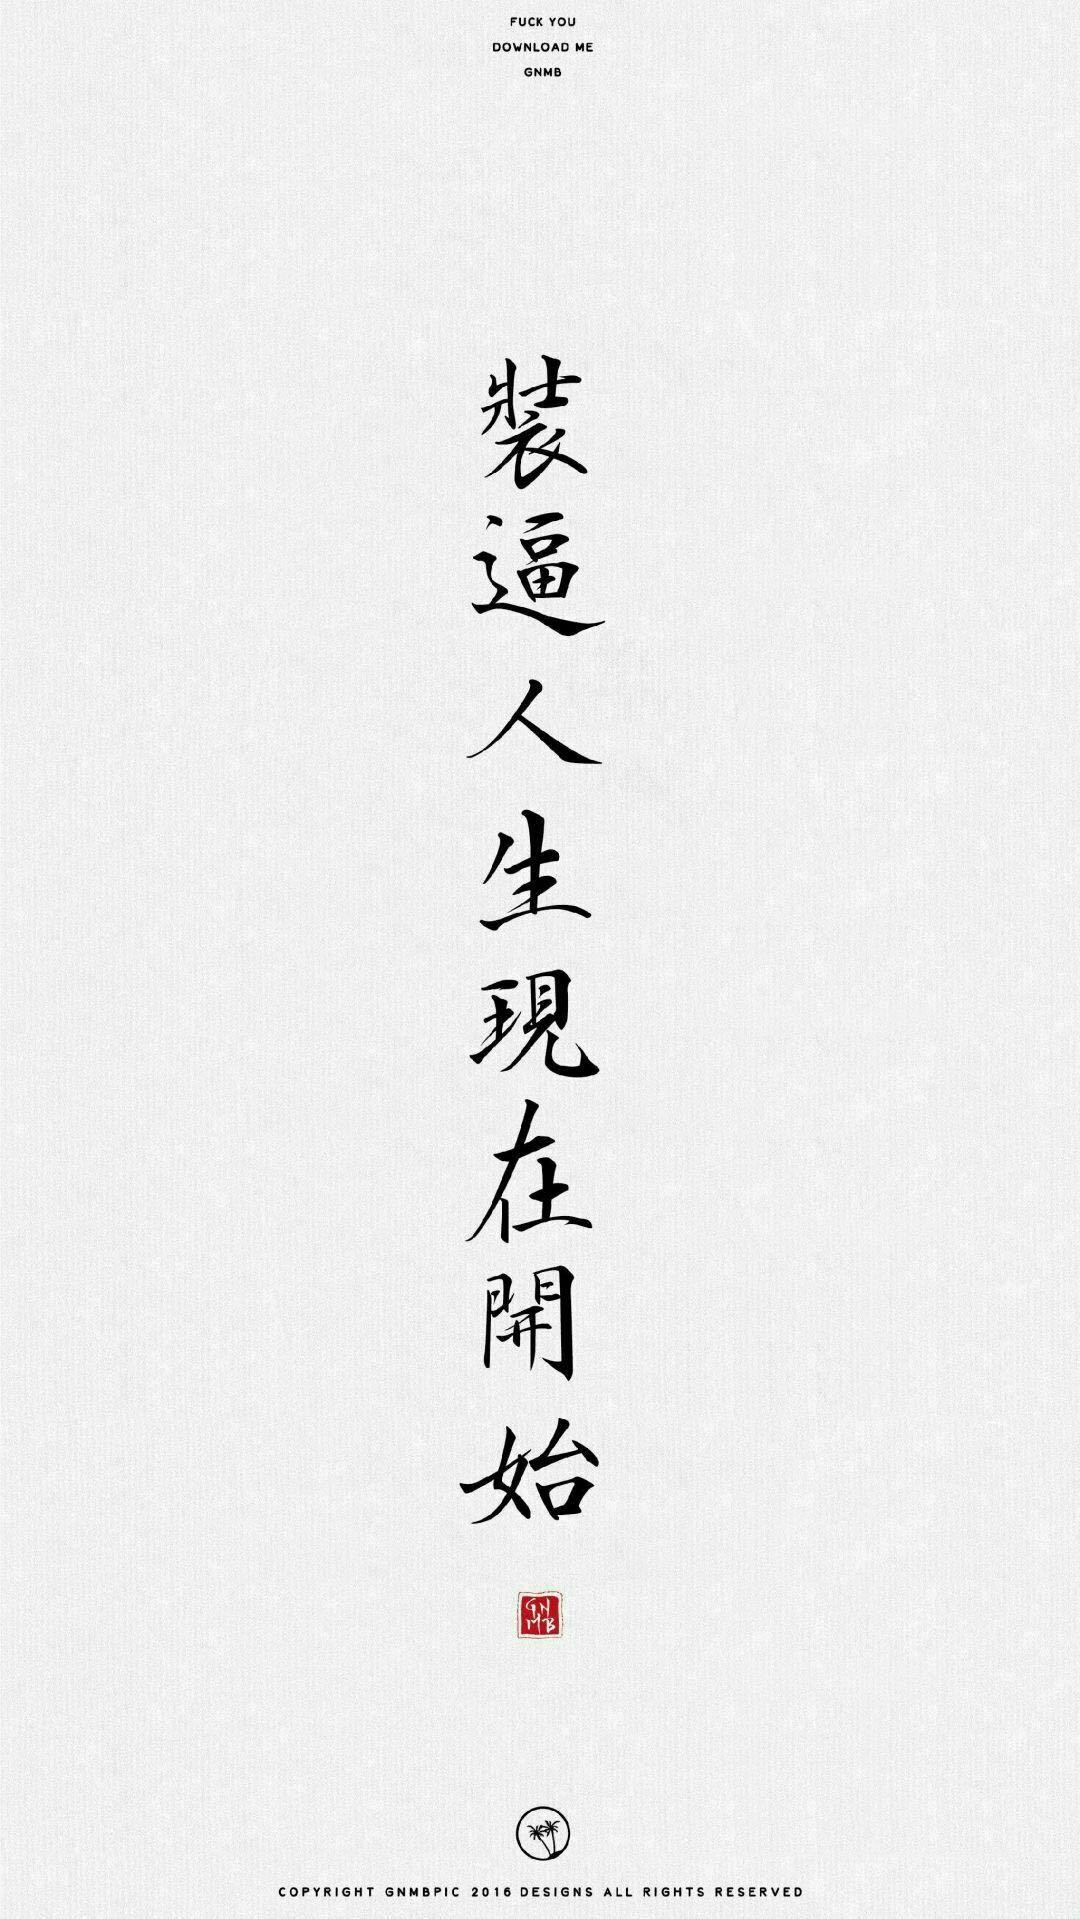 FUCK YOU
DOWNLOAD ME
GNMB
裝逼人生現在開始
GN
MB
COPYRIGHT GNMBPIC 2016 DESIGNS ALL RIGHTS RESERVED